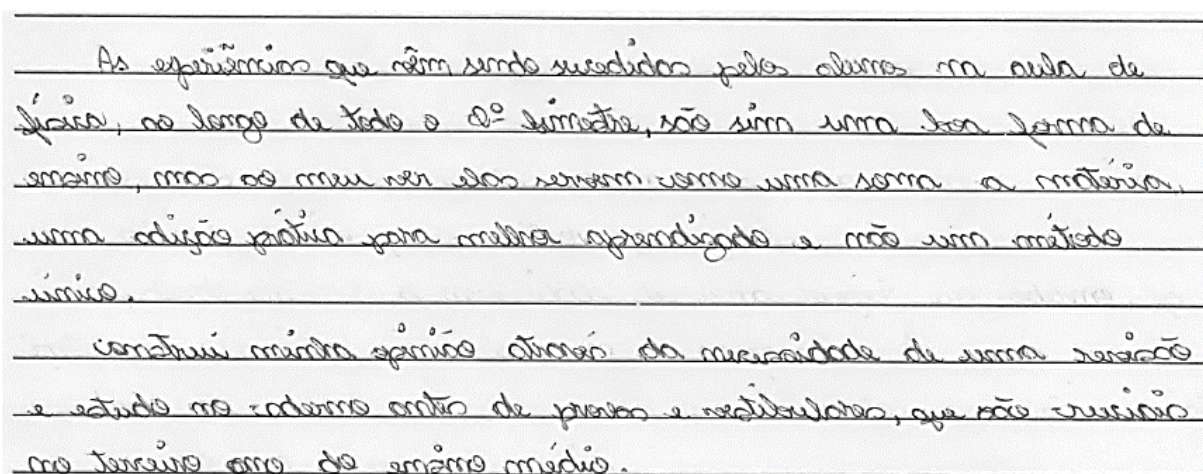 As experiências que vêm sendo sucedidas pelos alunos na aula de
física, ao longo de todo o 2º bimestre, são sim uma boa forma de
ensino, mas ao meu ver elas servem como uma soma a matéria,
uma adição prática para melhor aprendizado e não um método
único.
construi minha opinião através da necessidade de uma revisão
e estudo no caderno antes de provas e vestibulares, que são cruciais
no terceiro ano do ensino médio.